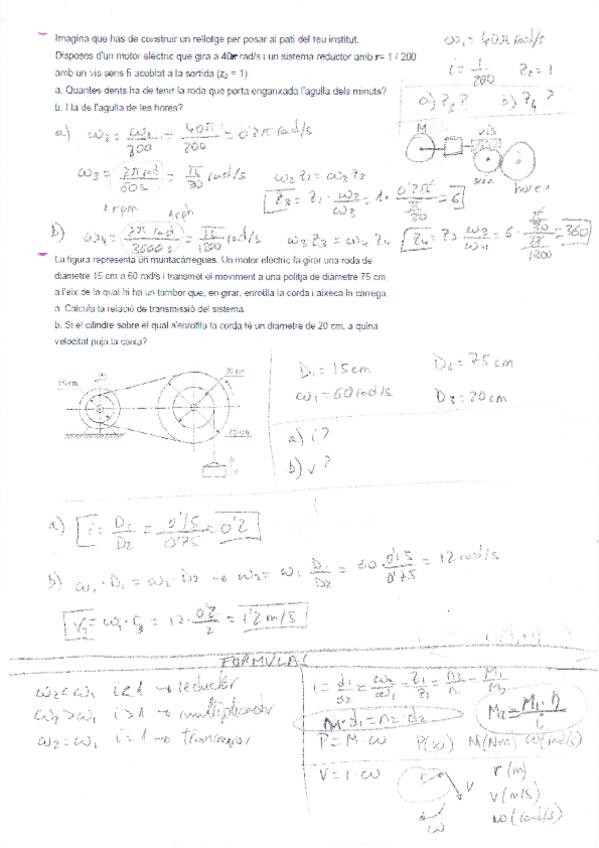 Imagina que has de construir un rellotge per posar al pati del teu institut.
Disposes d'un motor elèctric que gira a 40π rad/s i un sistema reductor amb r= 1 / 200
amb un vis sens fi acoblat a la sortida (z₂ = 1).
a. Quantes dents ha de tenir la roda que porta enganxada l'agulla dels minuts?
b. I la de l'agulla de les hores?
ω₁ = 40π rad/s
i = 1/200 z₂ = 1
a) z₃? b) z₄?
M vis
hores
a) ω₂ = ω₁/200 = 40π/200 = 0'2π rad/s
ω₃ = 2π rad/60s = π/30 rad/s
1 rpm
ω₂ z₂ = ω₃ z₃
z₃ = z₂ · ω₂/ω₃ = 1 · 0'2π/(π/30) = 6
1 rph
b) ω₄ = 2π rad/3600 s = π/1800 rad/s
ω₃ z₃ = ω₄ z₄ z₄ = z₃ ω₃/ω₄ = 6 · (π/30)/(π/1800) = 360
La figura representa un muntacàrregues. Un motor elèctric fa girar una roda de
diàmetre 15 cm a 60 rad/s i transmet el moviment a una politja de diàmetre 75 cm,
a l'eix de la qual hi ha un tambor que, en girar, enrotlla la corda i aixeca la càrrega.
a. Calcula la relació de transmissió del sistema.
b. Si el cilindre sobre el qual s'enrotlla la corda té un diàmetre de 20 cm, a quina
velocitat puja la caixa?
15 cm
20 cm
75 cm
D₁ = 15 cm D₂ = 75 cm
ω₁ = 60 rad/s D₃ = 20 cm
a) i?
b) v?
a) i = D₁/D₂ = 0'15/0'75 = 0'2
b) ω₁ · D₁ = ω₂ · D₂ → ω₂ = ω₁ D₁/D₂ = 60 · 0'15/0'75 = 12 rad/s
= 12 · 0'2/2 = 1'2 m/s
FORMULES
ω₂ < ω₁ i < 1 → reductor
ω₂ > ω₁ i > 1 → multiplicador
ω₂ = ω₁ i = 1 → transmisor
i = d₁/d₂ = ω₂/ω₁ = z₁/z₂ = n₂/n₁ = M₁/M₂
n₁ · d₁ = n₂ · d₂
M₂ = M₁ · η/i
P = M · ω P(w) M(Nm) ω(rad/s)
V = r · ω
r (m)
v (m/s)
ω (rad/s)
r v
ω